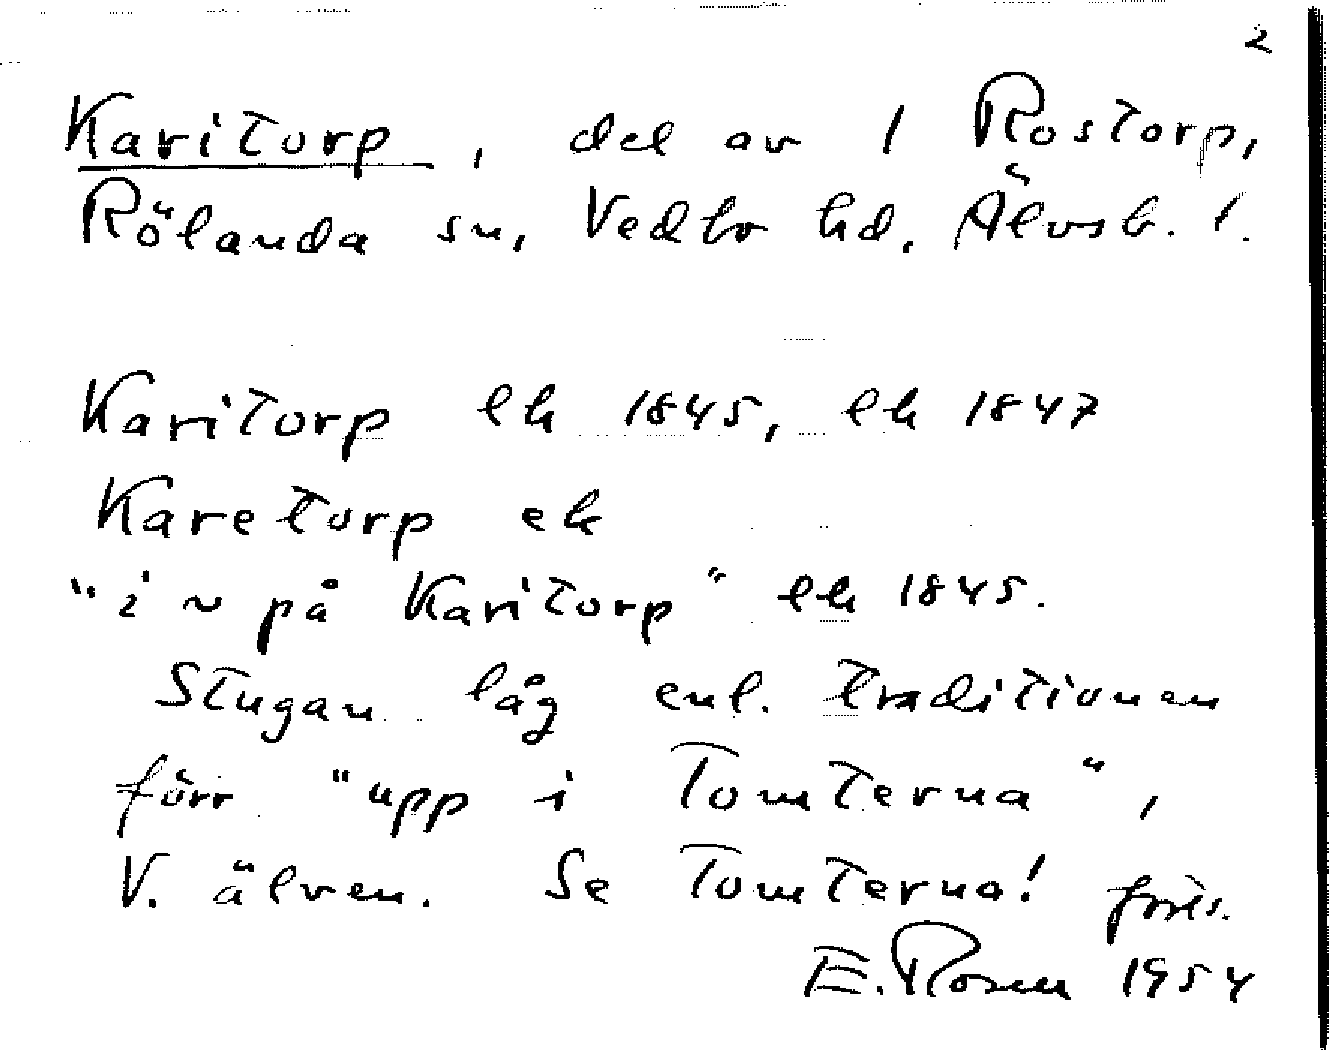 2
Karitorp, del av 1 Rostorp,
Rölanda sn, Vedbo hd. Älvsb. l.
Karitorp lh 1845, lh 1847
Karetorp ek
"i ~ på Karitorp" lh 1845.
Stugan låg enl. traditionen
förr "upp i Tomterna",
V. älven. Se Tomterna! forts.
E. Rosen 1954